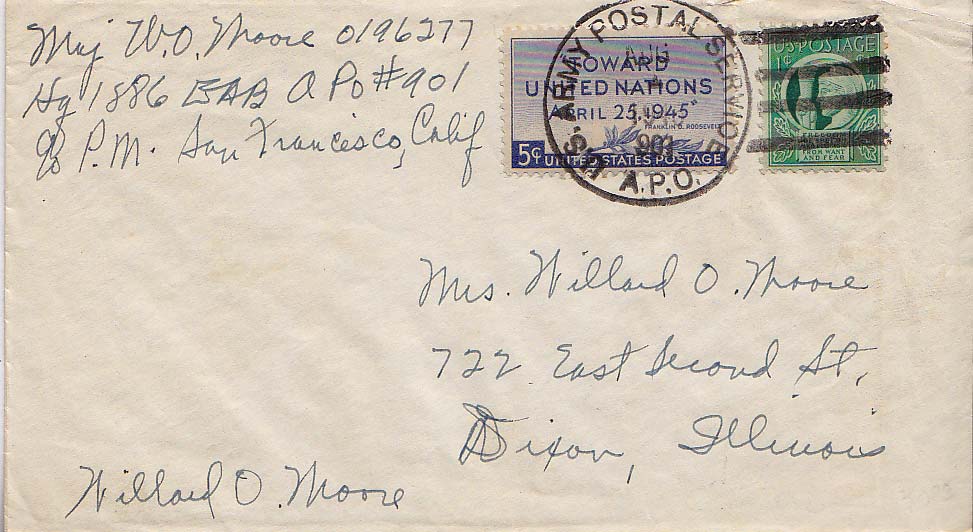 Maj W.O. Moore 0196277
Hq 1886 EAB A Po #901
c/o P.M. San Francisco, Calif
TOWARD
UNITED NATIONS
APRIL 25, 1945
FRANKLIN D. ROOSEVELT
5¢ UNITED STATES POSTAGE
U.S. ARMY POSTAL SERVICE
AUG
901
A.P.O.
US POSTAGE
1¢
FREEDOM
FROM WANT
AND FEAR
Mrs. Willard O. Moore
722 East Second St,
Dixon, Illinois
Willard O. Moore